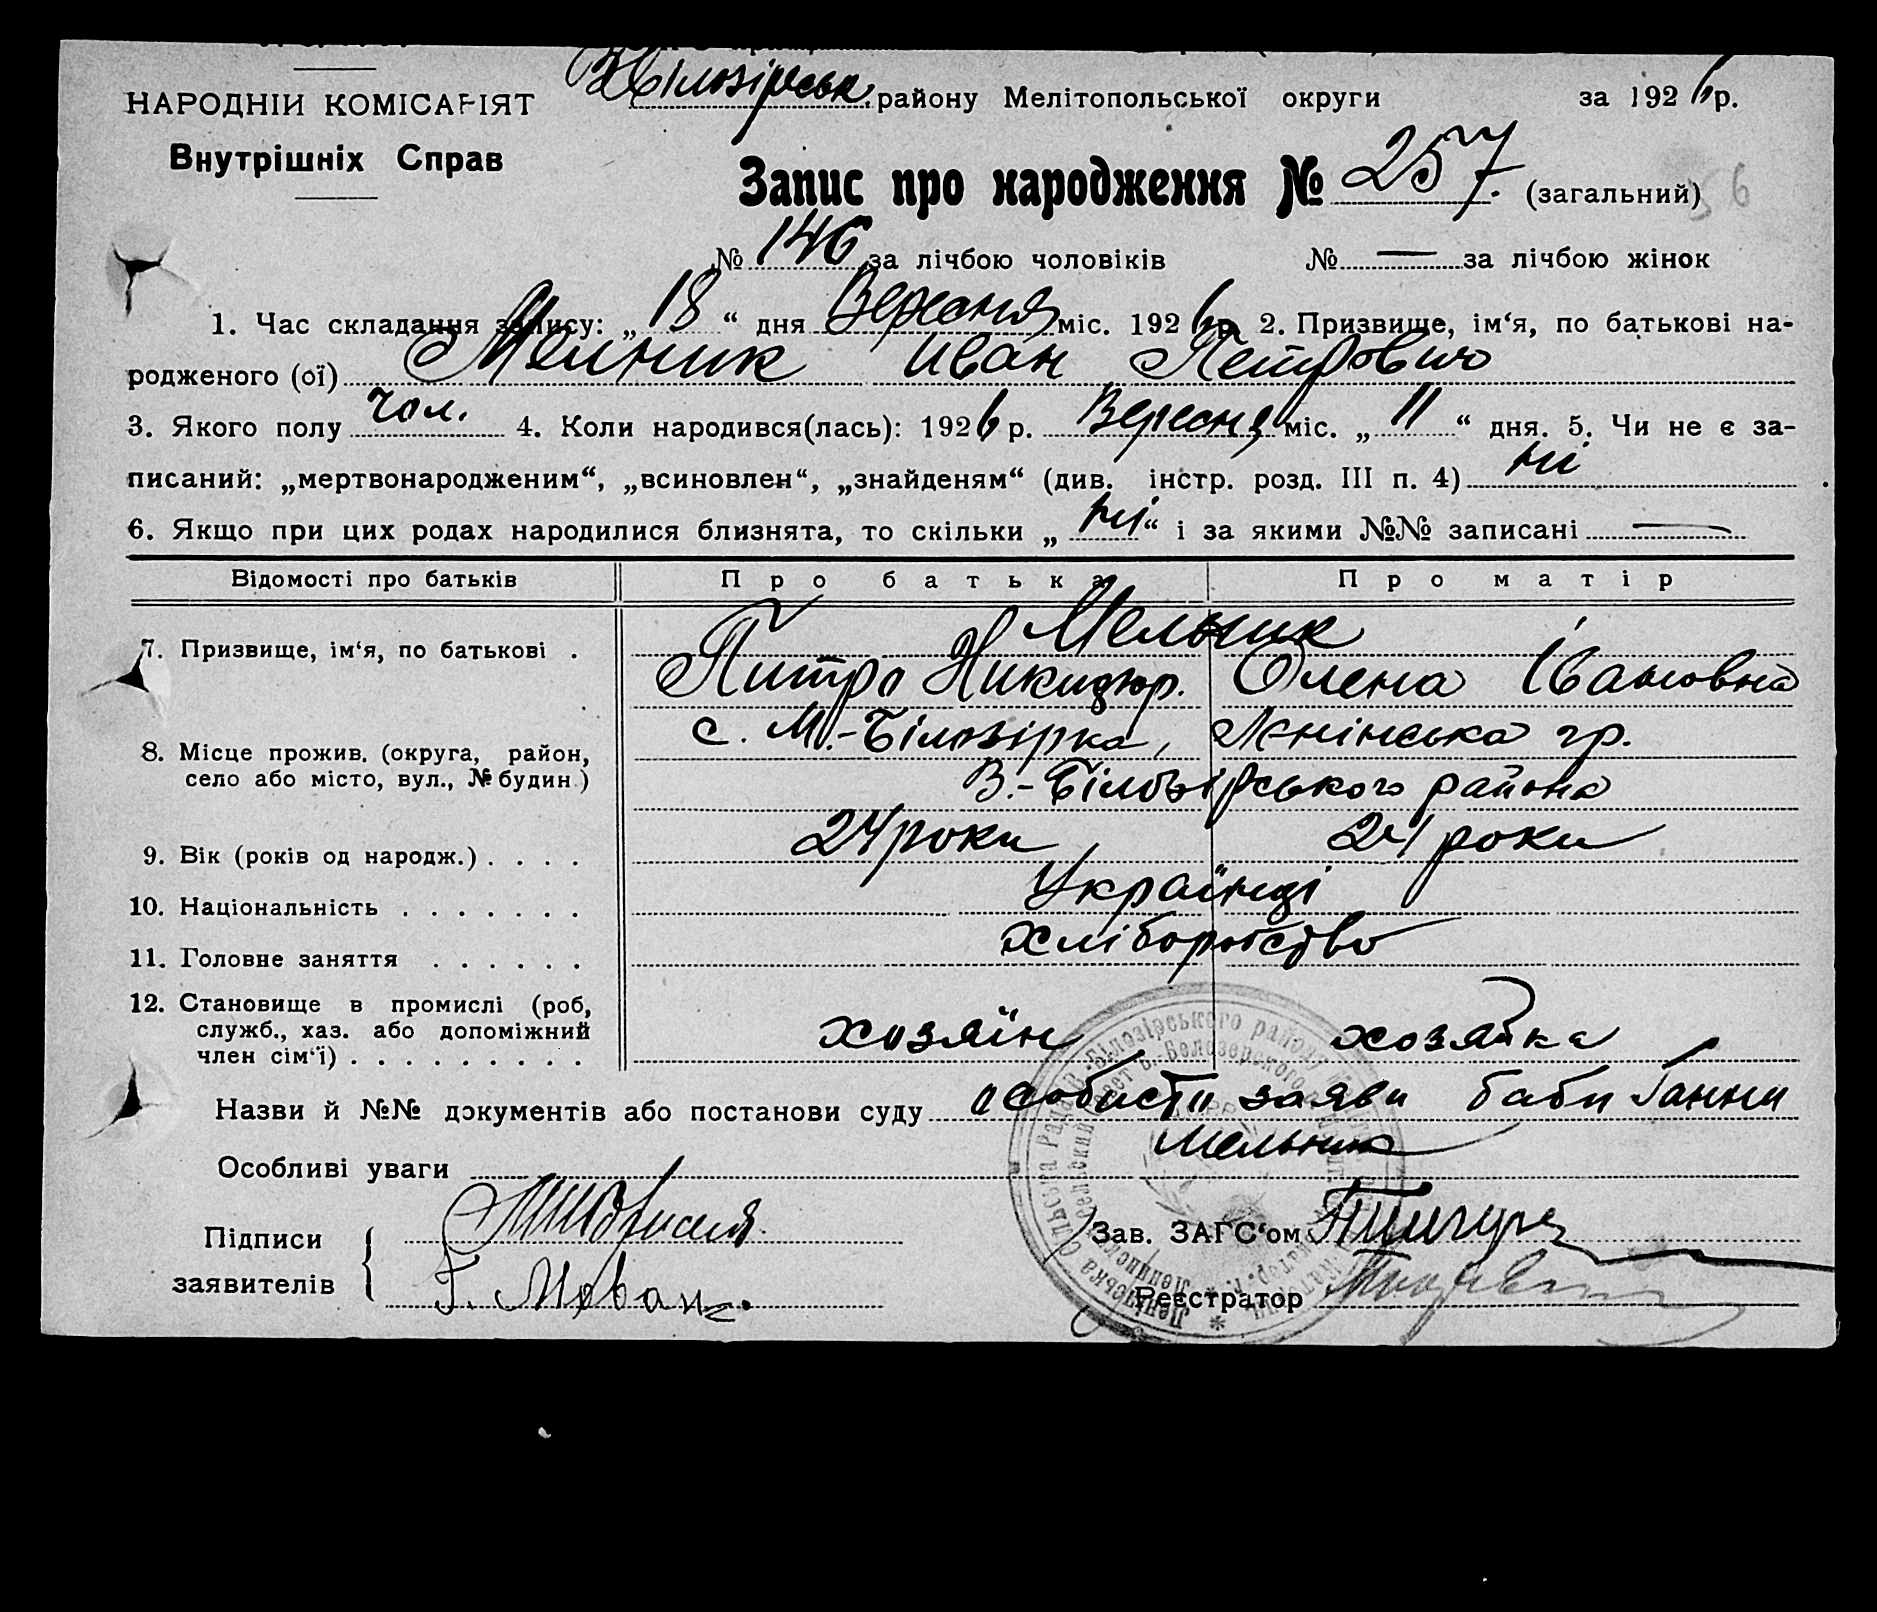 НАРОДНІЙ КОМІСАРІЯТ
Внутрішніх Справ
В Білозірськ. району Мелітопольської округи за 1926 р.
Запис про народження № 257. (загальний)
56
№ 146 за лічбою чоловіків № — за лічбою жінок
1. Час складання запису: „18“ дня Вересня міс. 1926 р. 2. Призвище, ім‘я, по батькові на-
родженого (ої) Мельник Иван Петрович
3. Якого полу чол. 4. Коли народився(лась): 1926 р. Вересня міс. „11“ дня. 5. Чи не є за-
писаний: „мертвонародженим“, „всиновлен“, „знайденям“ (див. інстр. розд. III п. 4) ні
6. Якщо при цих родах народилися близнята, то скільки „ні“ і за якими №№ записані —
Відомості про батьків Про батька Про матір
Мельник
7. Призвище, ім‘я, по батькові . Питро Никидор. Олена Івановна
с. М.-Білозірка, Ленінська гр.
8. Місце прожив. (округа, район,
село або місто, вул., № будин.) В.-Білозірського района
9. Вік (років од народж.) . . . . 24 роки 24 роки
10. Національність . . . . . . . Українці
11. Головне заняття . . . . . . хліборобство
12. Становище в промислі (роб,
служб., хаз. або допоміжний хозяїн хозяйка
член сім‘ї) . . . . . . . . .
Назви й №№ документів або постанови суду особисті заяви баби Ганни
Мельник
Особливі уваги
Підписи
заявителів
Г. Мован
Зав. ЗАГС‘ом
Реєстратор